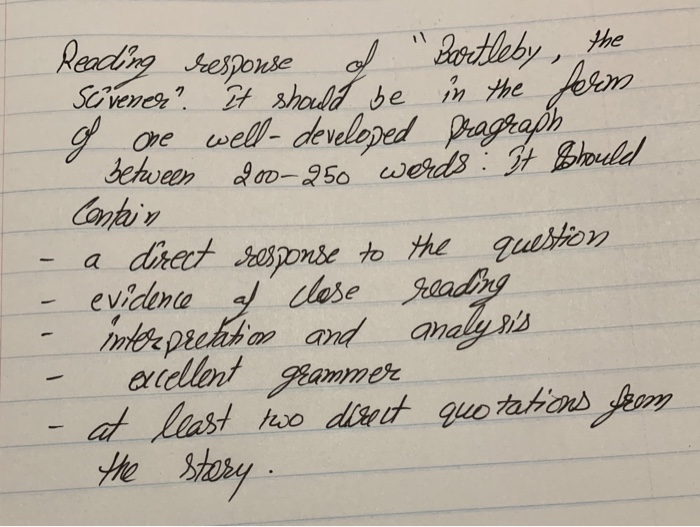 Reading response of "Bartleby, the
Scivener". It should be in the form
of one well-developed pragraph
between 200-250 words: it should
Contain
- a direct response to the question
- evidence of close reading
- interpretation and analysis
- excellent grammer
- at least two direct quotations from
the story.